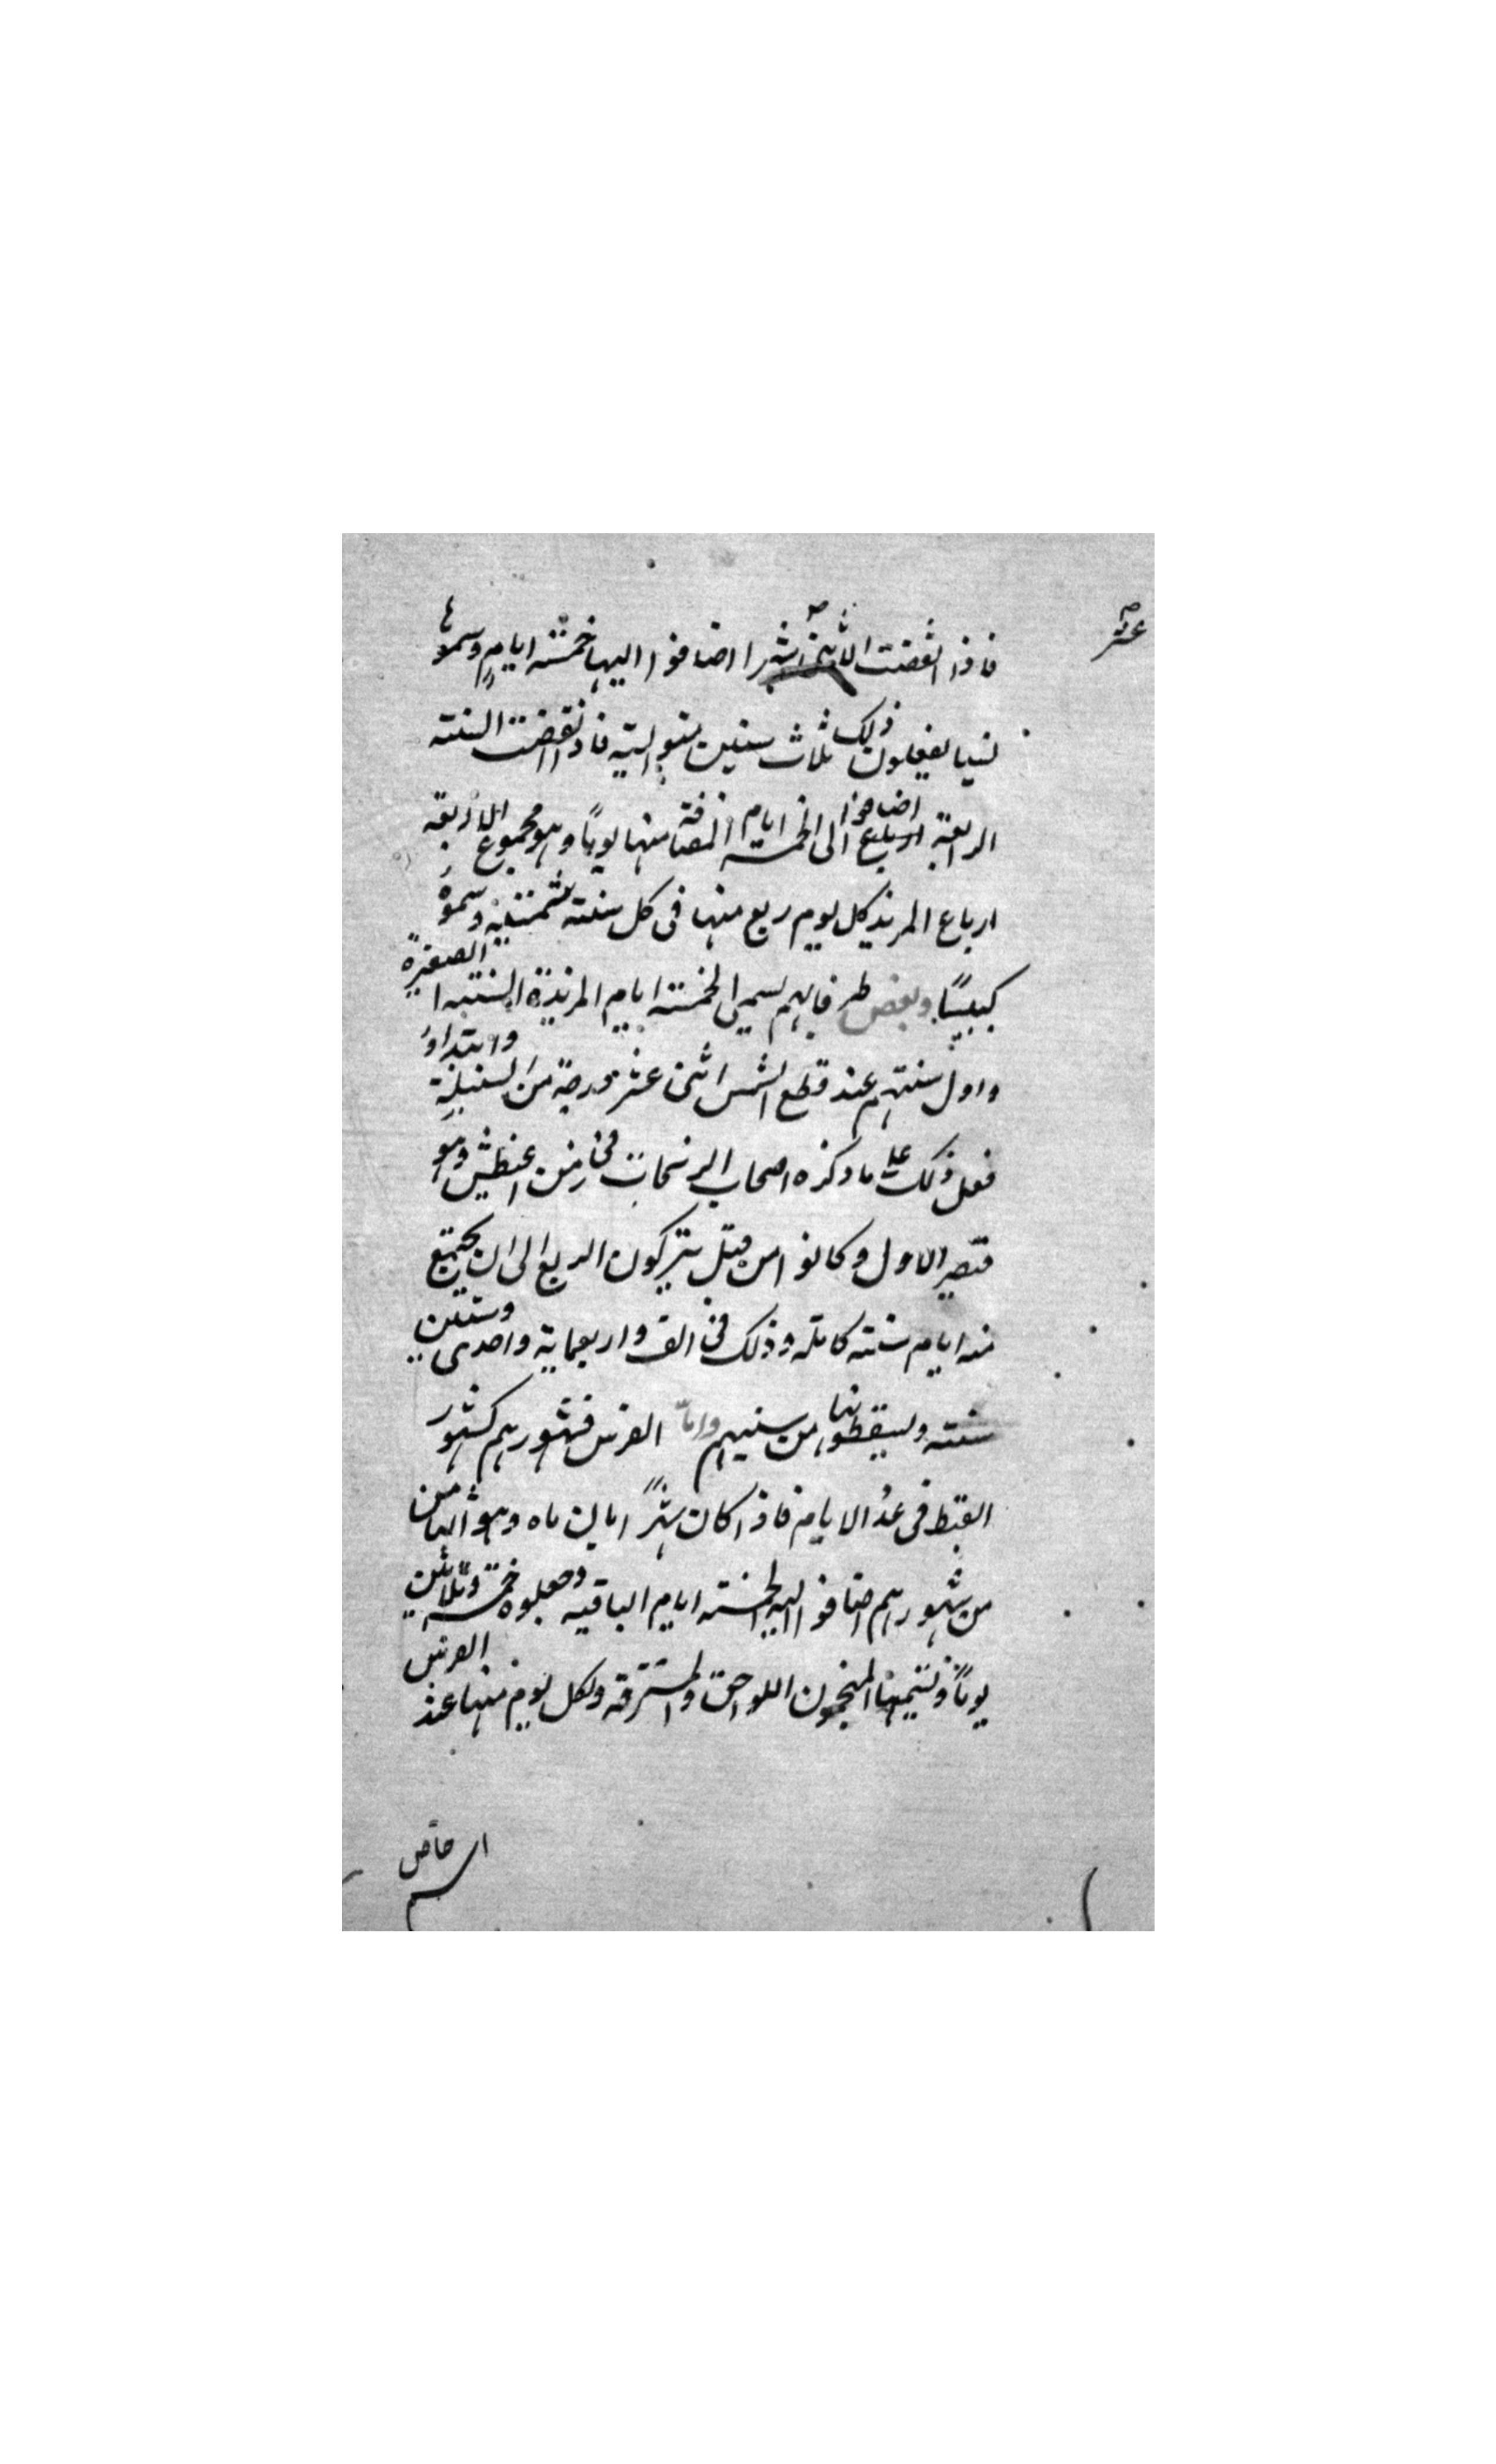 عشر
فاذا انقضت الاثنى شهرا اضافوا اليها خمسته ايام وسموها
نسيا يفعلون ذلك ثلاث سنين متواليه فاذا انقضت السنته
الرابعة ارباع اضافوا الى الخمسه ايام المضافة منها يوماً وهو مجموع الاربعة
ارباع المزيد كل يوم ربع منها فى كل سنته شمسيه وسموه
كبيساً وبعض طرفايهم يسمى الخمسته ايام المزيدة السنته الصغيرة
واول سنتهم عند قطع الشمس اثنى عشر درجة من السنبلة وابتداؤ
فعل ذلك على ما ذكره اصحاب الزيجات فى زمن اغسطس وهو
قيصر الاول وكانوا من قبل يتركون الربع الى ان يجتمع
منه ايام سنته كاملة وذلك فى الف واربعماية واحدى وستين
سنته ويسقطونها من سنيهم واما الفرس فشهورهم كشهور
القبط فى عدد الايام فاذا كان شهر ابان ماه وهو الثامن
من شهورهم اضافوا اليه الخمسته ايام الباقيه وجعلوه خمسه وثلاثين
يوماً وتسميها المنجمون اللواحق والمسترقه ولكل يوم منها عند الفرس
اسم خاص